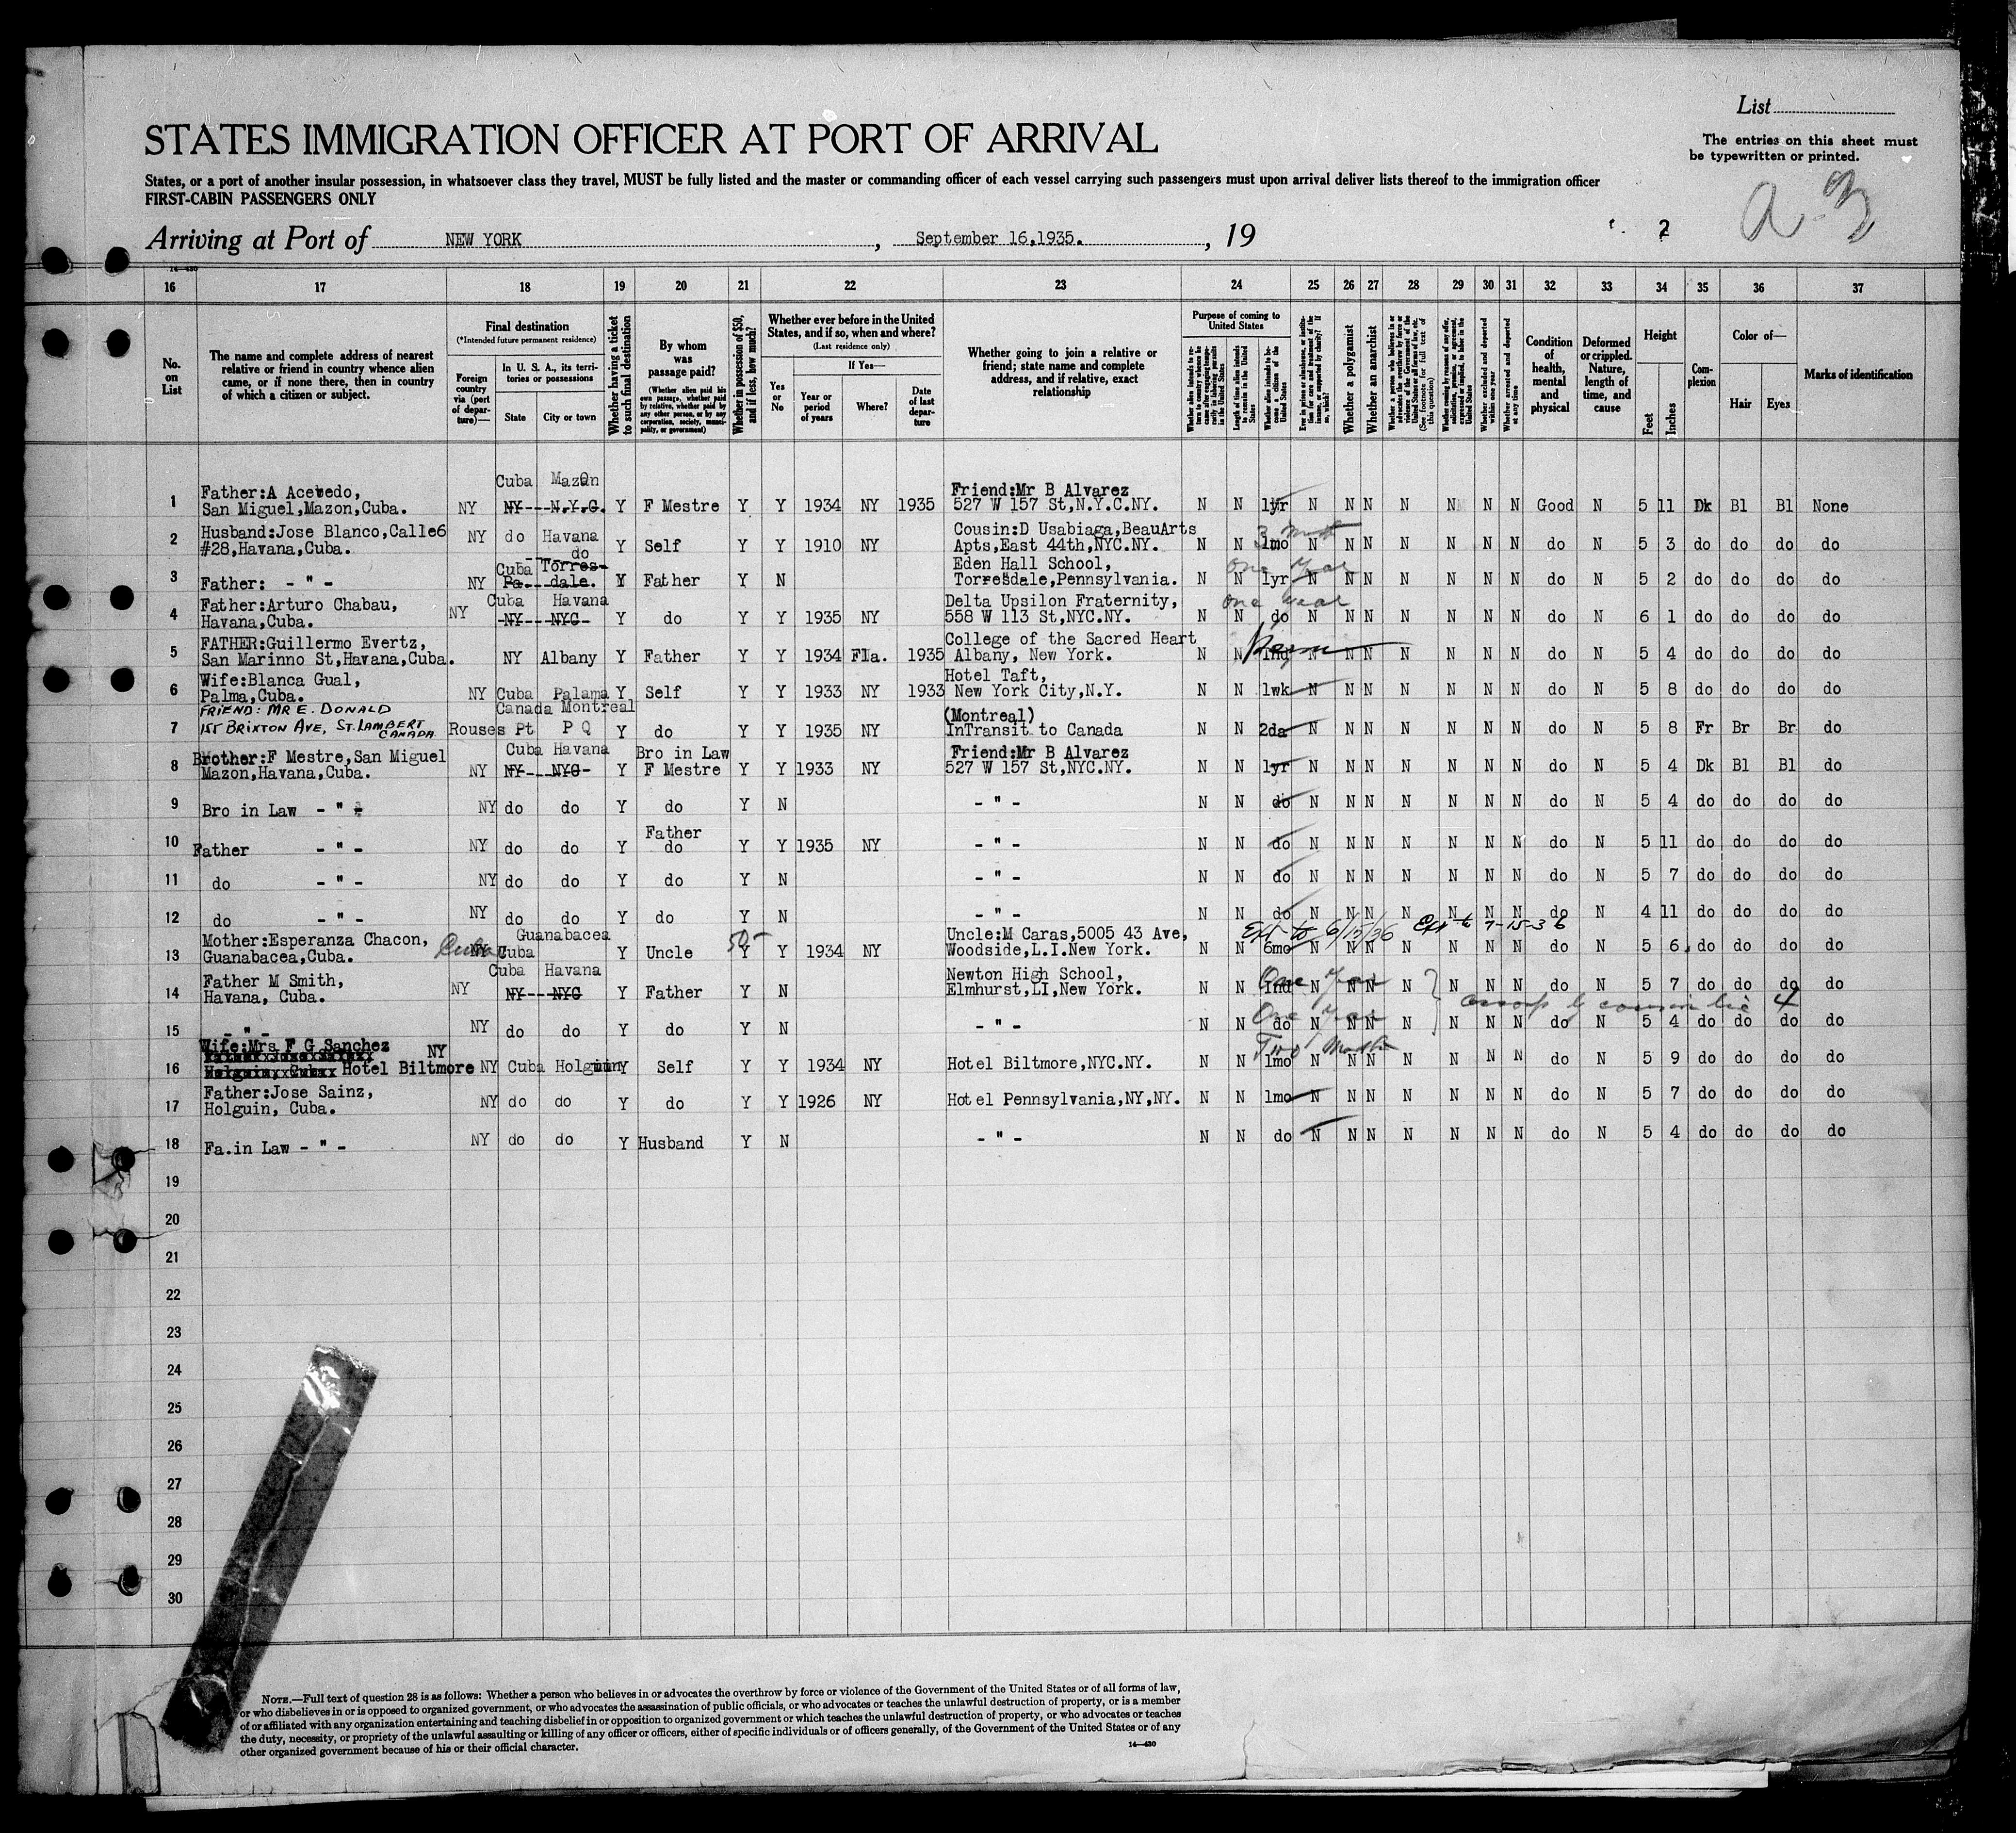 List
STATES IMMIGRATION OFFICER AT PORT OF ARRIVAL
The entries on this sheet must
be typewritten or printed.
States, or a port of another insular possession, in whatsoever class they travel, MUST be fully listed and the master or commanding officer of each vessel carrying such passengers must upon arrival deliver lists thereof to the immigration officer
FIRST-CABIN PASSENGERS ONLY
a-3
Arriving at Port of NEW YORK, September 16,1935., 19
2
14—430
16 17 18 19 20 21 22 23 24 25 26 27 28 29 30 31 32 33 34 35 36 37
No. on List
The name and complete address of nearest
relative or friend in country whence alien
came, or if none there, then in country
of which a citizen or subject.
Final destination
(*Intended future permanent residence)
Foreign country via (port of departure)—
In U. S. A., its territories or possessions
State
City or town
Whether having a ticket to such final destination
By whom was passage paid?
(Whether alien paid his own passage, whether paid by relative, whether paid by any other person, or by any corporation, society, municipality, or government)
Whether in possession of $50, and if less, how much?
Whether ever before in the United States, and if so, when and where?
(Last residence only)
Yes or No
If Yes—
Year or period of years
Where?
Date of last departure
Whether going to join a relative or
friend; state name and complete
address, and if relative, exact
relationship
Purpose of coming to United States
Length of time alien intends to remain in the United States
Whether alien intends to become a citizen of the United States
Whether a polygamist
Whether an anarchist
(See footnote for full text of this question)
Whether excluded and deported within one year
Whether arrested and deported at any time
Condition of health, mental and physical
Deformed or crippled. Nature, length of time, and cause
Height
Feet
Inches
Complexion
Color of—
Hair
Eyes
Marks of identification
Cuba Mazon
1 Father:A Acevedo, San Miguel,Mazon,Cuba. NY NY N.Y.C. Y F Mestre Y Y 1934 NY 1935 Friend:Mr B Alvarez 527 W 157 St,N.Y.C.NY. N N 1yr N N N N N N N Good N 5 11 Dk Bl Bl None
2 Husband:Jose Blanco,Calle6 #28,Havana,Cuba. NY do Havana Y Self Y Y 1910 NY Cousin:D Usabiaga,BeauArts Apts,East 44th,NYC.NY. N N 1mo N N N N N N N do N 5 3 do do do do
Cuba do
3 Father: - " - NY Pa. Torresdale. Y Father Y N Eden Hall School, Torresdale,Pennsylvania. N N 1yr One Year N N N N N N N do N 5 2 do do do do
Cuba Havana
4 Father:Arturo Chabau, Havana,Cuba. NY NY NYC Y do Y Y 1935 NY Delta Upsilon Fraternity, 558 W 113 St,NYC.NY. N N do one year N N N N N N N do N 6 1 do do do do
5 FATHER:Guillermo Evertz, San Marinno St,Havana,Cuba. NY Albany Y Father Y Y 1934 Fla. 1935 College of the Sacred Heart Albany, New York. N N Ind N N N N N N N do N 5 4 do do do do
6 Wife:Blanca Gual, Palma,Cuba. NY Cuba Palama Y Self Y Y 1933 NY 1933 Hotel Taft, New York City,N.Y. N N 1wk N N N N N N N do N 5 8 do do do do
Canada Montreal
7 FRIEND: MR E. DONALD 155 BRIXTON AVE, ST. LAMBERT CANADA Rouses Pt P Q Y do Y Y 1935 NY (Montreal) InTransit to Canada N N 2da N N N N N N N do N 5 8 Fr Br Br do
Cuba Havana
8 Brother:F Mestre,San Miguel Mazon,Havana,Cuba. NY NY NYC Y Bro in Law F Mestre Y Y 1933 NY Friend:Mr B Alvarez 527 W 157 St,NYC.NY. N N 1yr N N N N N N N do N 5 4 Dk Bl Bl do
9 Bro in Law - " - NY do do Y do Y N - " - N N do N N N N N N N do N 5 4 do do do do
10 Father - " - NY do do Y Father do Y Y 1935 NY - " - N N do N N N N N N N do N 5 11 do do do do
11 do - " - NY do do Y do Y N - " - N N do N N N N N N N do N 5 7 do do do do
12 do - " - NY do do Y do Y N - " - N N do N N N N N N N do N 4 11 do do do do
Ext to 6/15/36 Ext to 7-15-36
13 Mother:Esperanza Chacon, Guanabacea,Cuba. Cuba NY Cuba Guanabacea Y Uncle 50- Y Y 1934 NY Uncle:M Caras,5005 43 Ave, Woodside,L.I.New York. N N 6mo N N N N N N N do N 5 6 do do do do
Cuba Havana
14 Father M Smith, Havana, Cuba. NY NY NYC Y Father Y N Newton High School, Elmhurst,LI,New York. N N Ind One Year N N N N N N N do N 5 7 do do do do
15 - " - NY do do Y do Y N - " - N N do One Year N N N N N N N do N 5 4 do do do do
16 Wife:Mrs F G Sanchez NY Hotel Biltmore NY Cuba Holguin Y Self Y Y 1934 NY Hotel Biltmore,NYC.NY. N N 1mo Two Months N N N N N N N do N 5 9 do do do do
17 Father:Jose Sainz, Holguin, Cuba. NY do do Y do Y Y 1926 NY Hotel Pennsylvania,NY,NY. N N 1mo N N N N N N N do N 5 7 do do do do
18 Fa.in Law - " - NY do do Y Husband Y N - " - N N do N N N N N N N do N 5 4 do do do do
19
20
21
22
23
24
25
26
27
28
29
30
NOTE.—Full text of question 28 is as follows: Whether a person who believes in or advocates the overthrow by force or violence of the Government of the United States or of all forms of law,
or who disbelieves in or is opposed to organized government, or who advocates the assassination of public officials, or who advocates or teaches the unlawful destruction of property, or is a member
of or affiliated with any organization entertaining and teaching disbelief in or opposition to organized government or which teaches the unlawful destruction of property, or who advocates or teaches
the duty, necessity, or propriety of the unlawful assaulting or killing of any officer or officers, either of specific individuals or of officers generally, of the Government of the United States or of any
other organized government because of his or their official character.
14—430